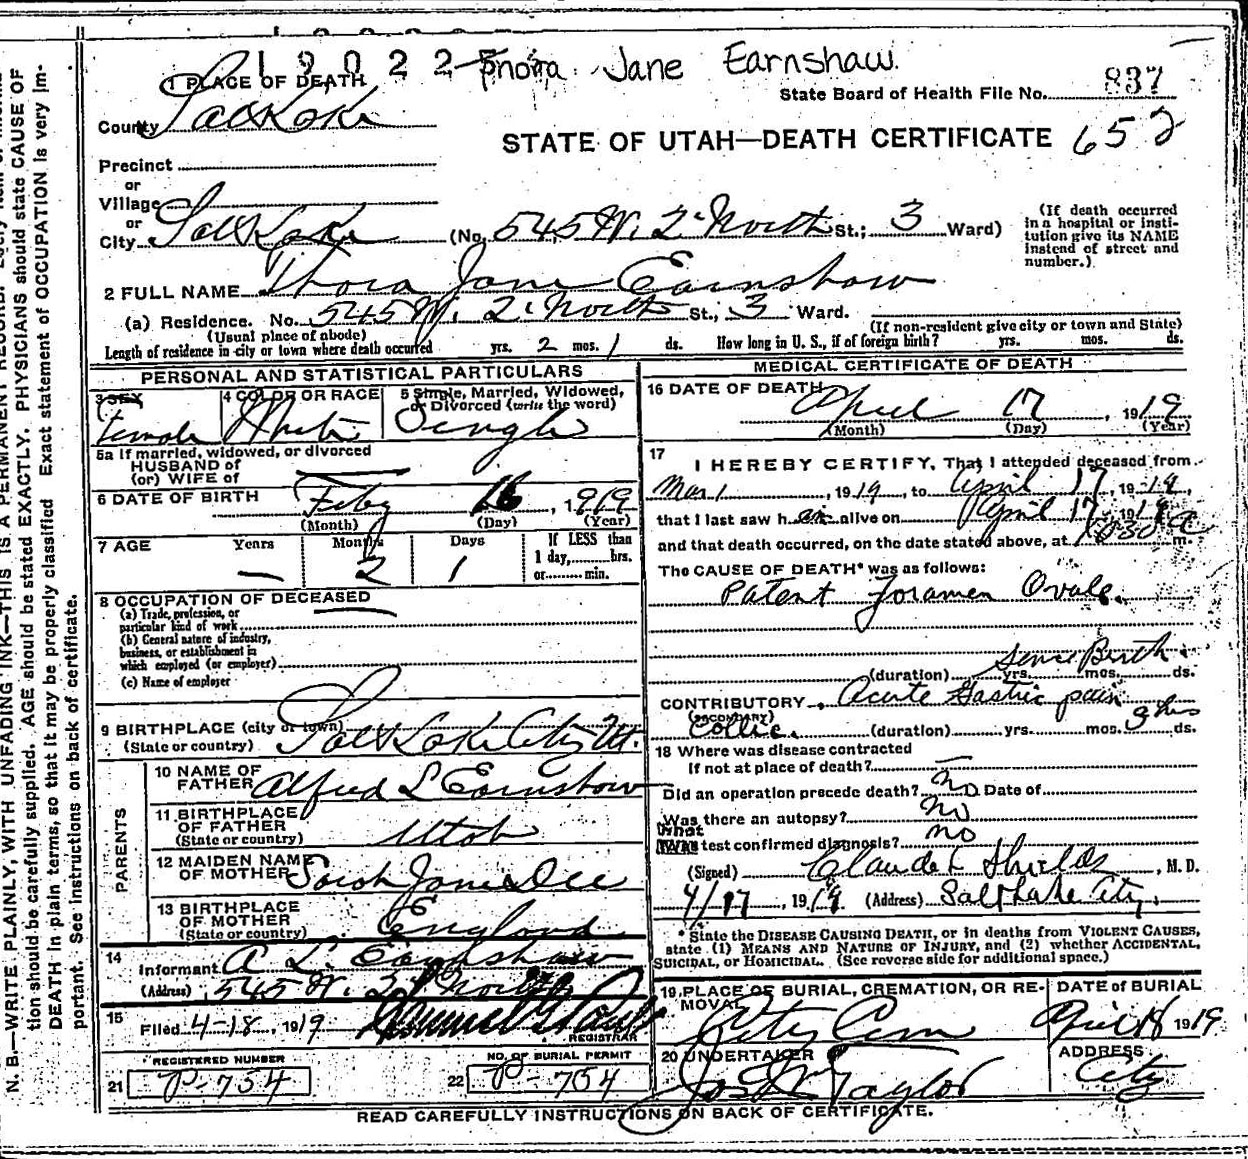 19022 Thora Jane Earnshaw.
1 PLACE OF DEATH
State Board of Health File No. 837
County Salt Lake
STATE OF UTAH—DEATH CERTIFICATE 652
Precinct
or
Village
or
City Salt Lake (No. 545 W. 2 North St.; 3 Ward)
(If death occurred in a hospital or insti-
tution give its NAME
instead of street and
number.)
2 FULL NAME Thora Jane Earnshaw
(a) Residence. No. 545 W. 2 North St.; 3 Ward.
(Usual place of abode) (If non-resident give city or town and State)
Length of residence in city or town where death occurred yrs. 2 mos. 1 ds. How long in U. S., if of foreign birth? yrs. mos. ds.
PERSONAL AND STATISTICAL PARTICULARS
3 SEX 4 COLOR OR RACE 5 Single, Married, Widowed,
or Divorced (write the word)
Female White Single
5a If married, widowed, or divorced
HUSBAND of
(or) WIFE of
6 DATE OF BIRTH Feby 16, 1919
(Month) (Day) (Year)
7 AGE Years Months Days If LESS than
1 day, hrs.
or min.
— 2 1
8 OCCUPATION OF DECEASED
(a) Trade, profession, or
particular kind of work
(b) General nature of industry,
business, or establishment in
which employed (or employer)
(c) Name of employer
9 BIRTHPLACE (city or town) Salt Lake City Ut.
(State or country)
PARENTS
10 NAME OF
FATHER Alfred L Earnshaw
11 BIRTHPLACE
OF FATHER
(State or country) Utah
12 MAIDEN NAME
OF MOTHER Sarah Jane Dee
13 BIRTHPLACE
OF MOTHER
(State or country) England
14
Informant A L. Earnshaw
(Address) 545 W. 2 North
15 Filed 4-18, 1919
REGISTRAR
REGISTERED NUMBER NO. OF BURIAL PERMIT
21 P-754 22 P-754
MEDICAL CERTIFICATE OF DEATH
16 DATE OF DEATH
April 17, 1919
(Month) (Day) (Year)
17
I HEREBY CERTIFY, That I attended deceased from
Mar 1, 1919, to April 17, 1919,
that I last saw her alive on April 17, 1919
and that death occurred, on the date stated above, at m.
The CAUSE OF DEATH* was as follows:
Patent Foramen Ovale.
Since Birth.
(duration) yrs. mos. ds.
CONTRIBUTORY Acute Gastric pain
(SECONDARY)
Collic. (duration) yrs. mos. 3 hrs ds.
18 Where was disease contracted
If not at place of death? —
Did an operation precede death? no Date of
Was there an autopsy? no
What
test confirmed diagnosis? no
(Signed) Claude L Shields, M. D.
4/17, 1919 (Address) Salt Lake City.
* State the DISEASE CAUSING DEATH, or in deaths from VIOLENT CAUSES,
state (1) MEANS AND NATURE OF INJURY, and (2) whether ACCIDENTAL,
SUICIDAL, or HOMICIDAL. (See reverse side for additional space.)
19 PLACE OF BURIAL, CREMATION, OR RE-
MOVAL City Cem
DATE OF BURIAL
April 18 1919
20 UNDERTAKER
Jos Wm Taylor
ADDRESS
City
READ CAREFULLY INSTRUCTIONS ON BACK OF CERTIFICATE.
N. B.—WRITE PLAINLY, WITH UNFADING INK—THIS IS A PERMANENT RECORD.
tion should be carefully supplied. AGE should be stated EXACTLY. PHYSICIANS should state CAUSE OF
DEATH in plain terms, so that it may be properly classified Exact statement of OCCUPATION is very im-
portant. See instructions on back of certificate.